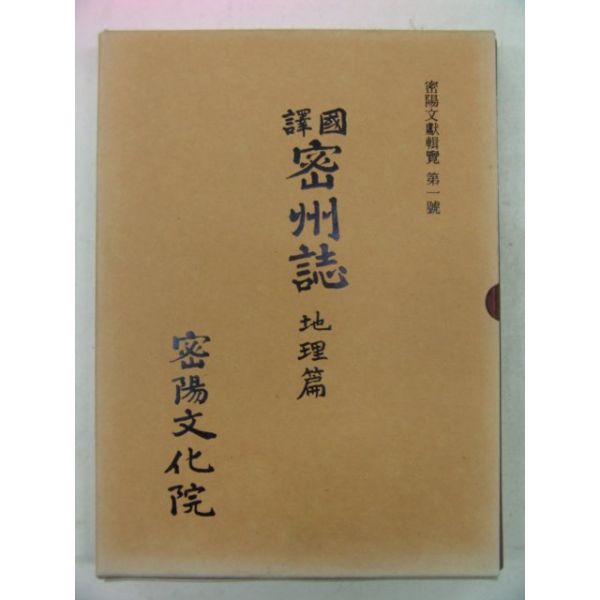 密陽文獻輯覽 第一號
國譯
密州誌 地理篇
密陽文化院